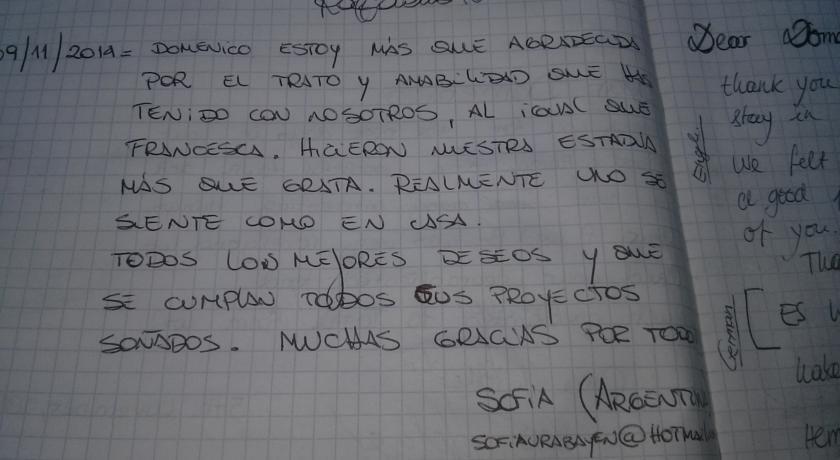 09/11/2014= DOMENICO ESTOY MÁS QUE AGRADECIDA
POR EL TRATO Y AMABILIDAD QUE HAS
TENIDO CON NOSOTROS, AL IGUAL QUE
FRANCESCA. HICIERON NUESTRA ESTADÍA
MÁS QUE GRATA. REALMENTE UNO SE
SIENTE COMO EN CASA.
TODOS LOS MEJORES DESEOS Y QUE
SE CUMPLAN TODOS SUS PROYECTOS
SOÑADOS. MUCHAS GRACIAS POR TODO
SOFÍA (ARGENTINA
SOFIAURABAYEN@HOTMAIL
Dear
thank you
stay in
We felt
a good
of you.
Engl.
German
ES